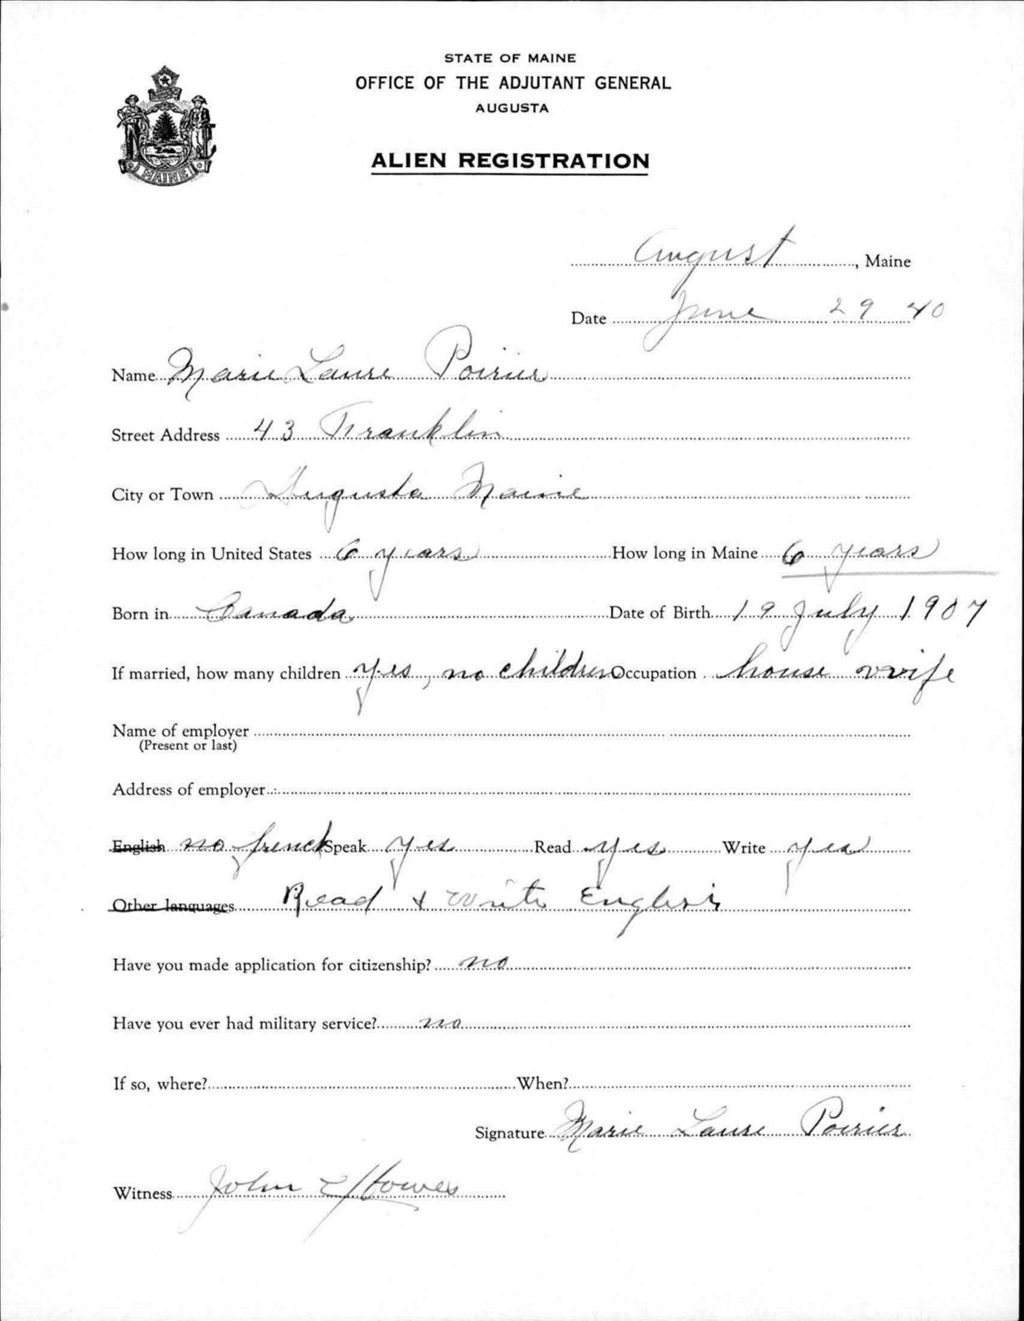 STATE OF MAINE
OFFICE OF THE ADJUTANT GENERAL
AUGUSTA
ALIEN REGISTRATION
MAINE
August, Maine
Date June 29 40
Name Marie Laure Poirier
Street Address 43 Franklin
City or Town Augusta Maine
How long in United States 6 years How long in Maine 6 years
Born in Canada Date of Birth 19 July 1907
If married, how many children yes, no children Occupation house wife
Name of employer
(Present or last)
Address of employer
English no french Speak yes Read yes Write yes
Other languages Read & write English
Have you made application for citizenship? no
Have you ever had military service? no
If so, where? When?
Signature Marie Laure Poirier
Witness John E Howes